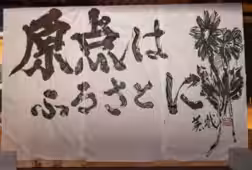 原点は
ふるさとに